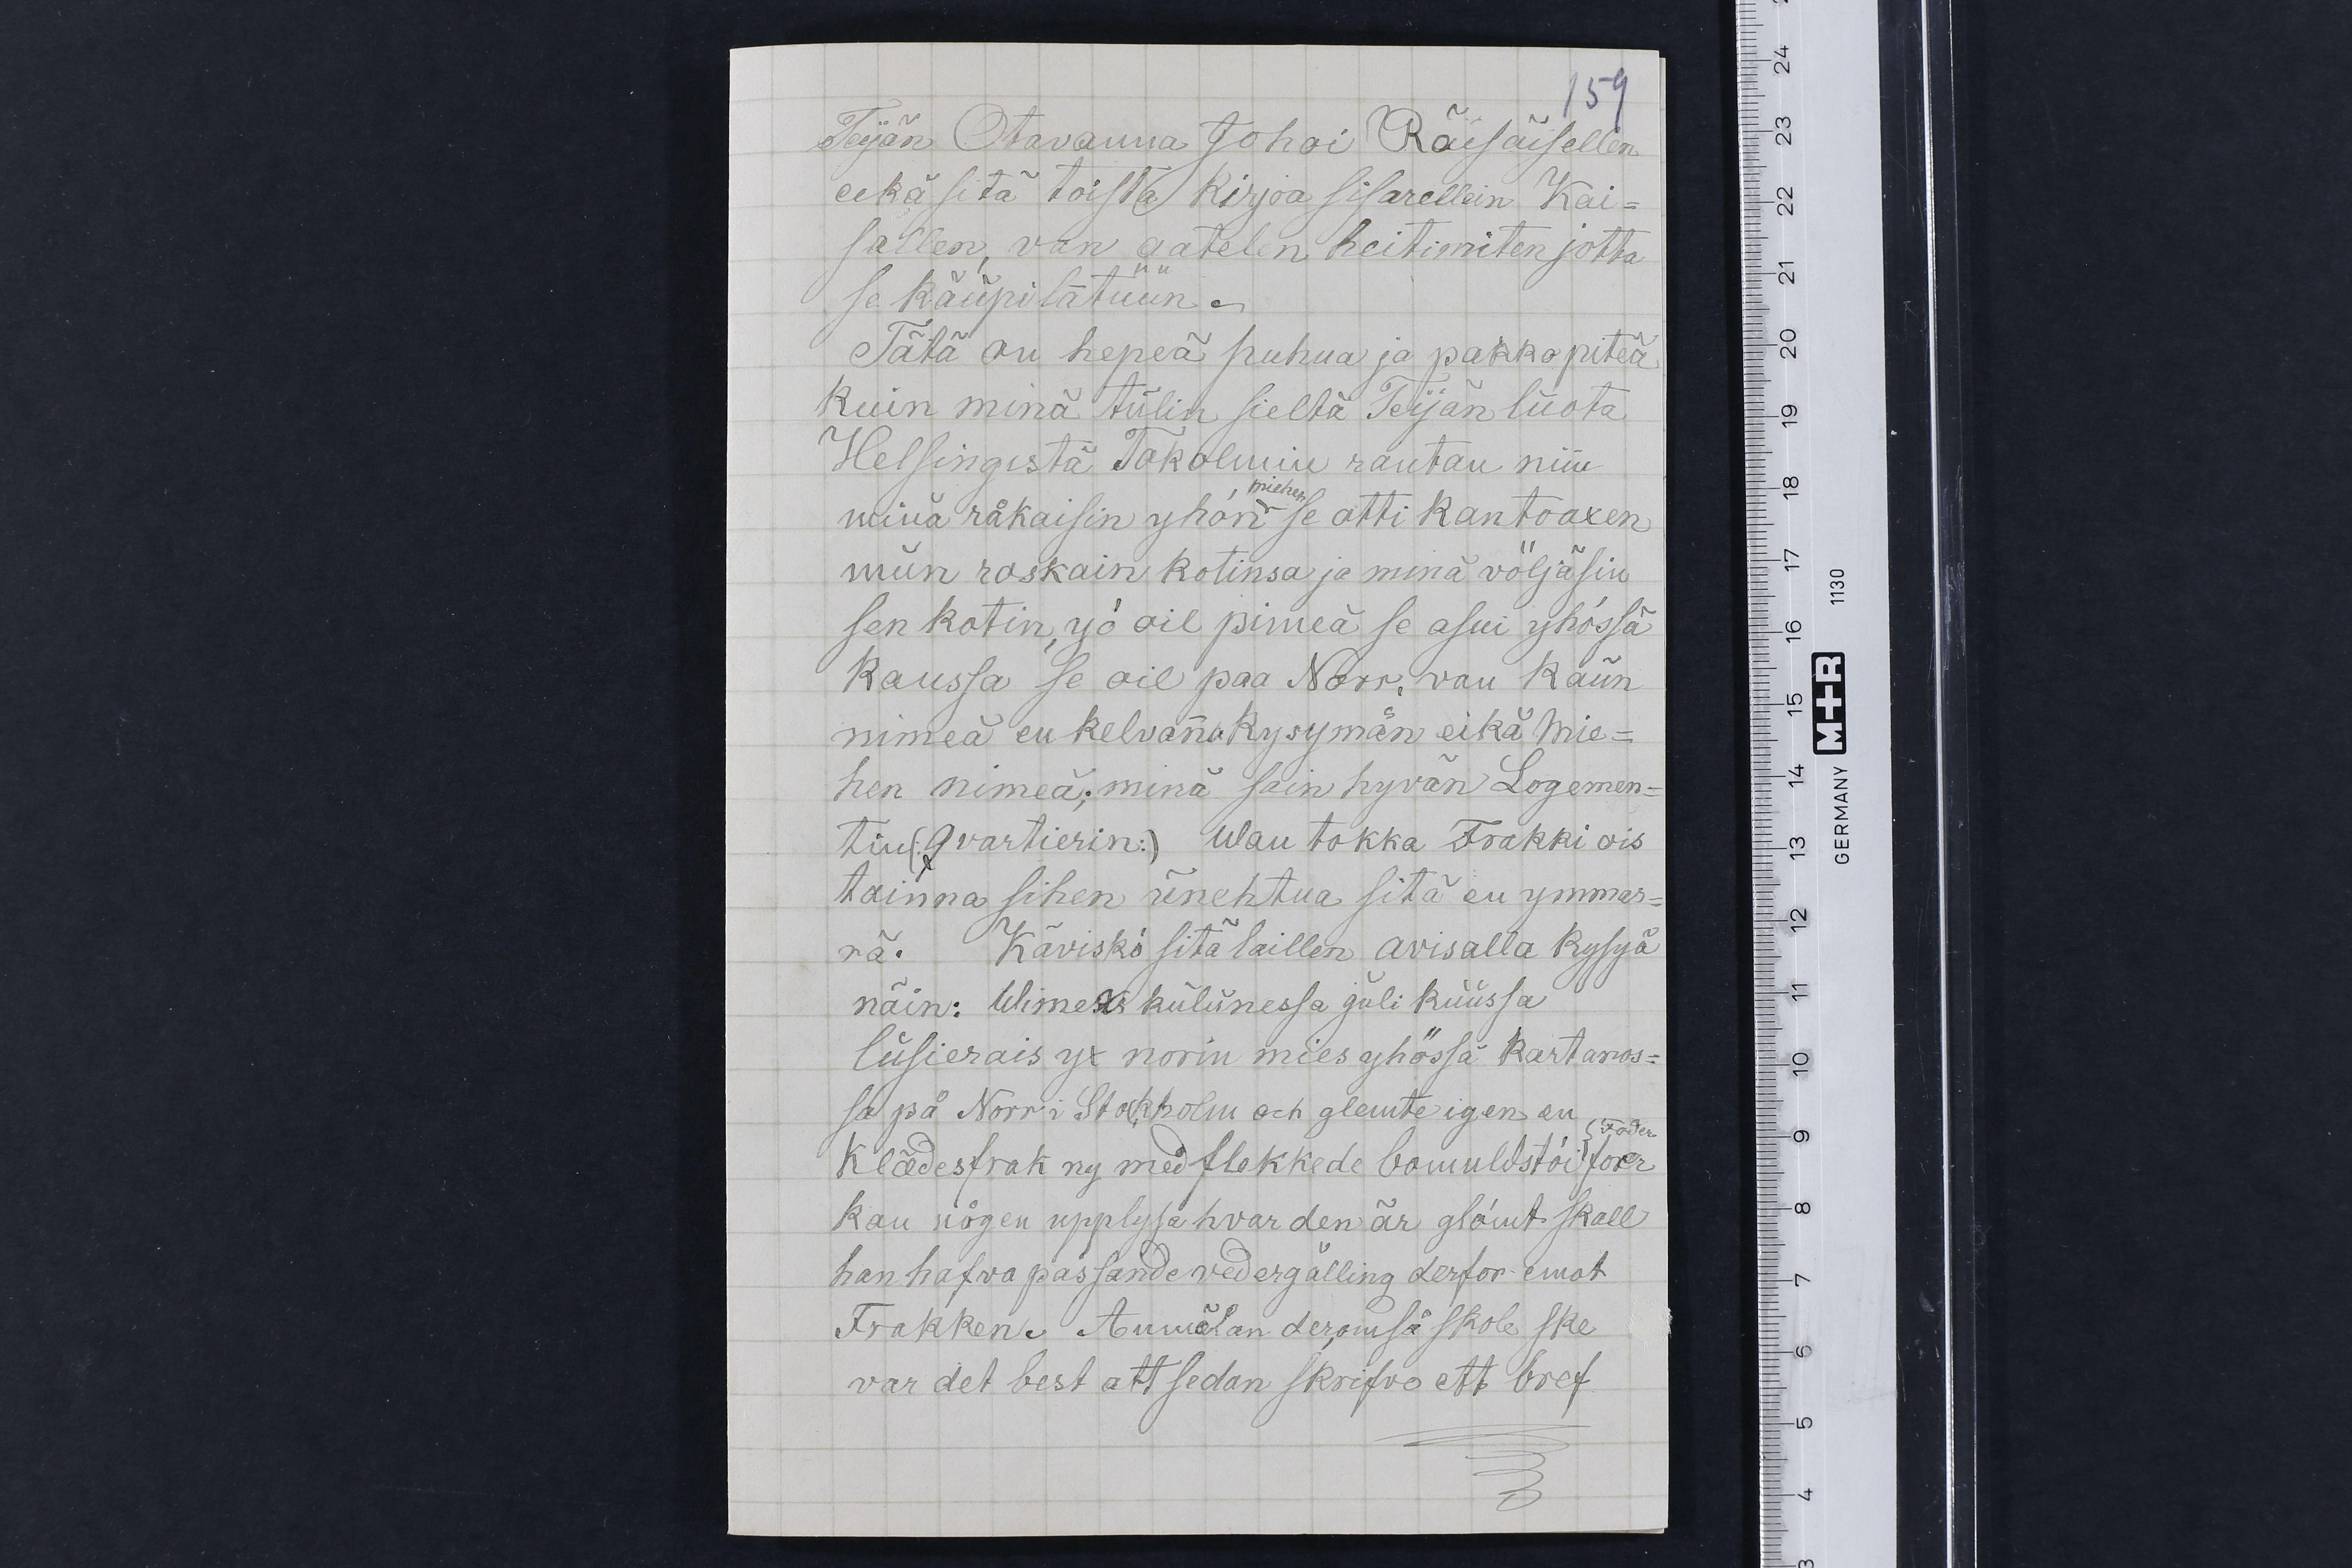 159
Teijän Otavanna Johoi Räisäisellen
eekä sitä toista kirjoa sisarellein Kai=
sallen, van aatelen heitimiten jotta
se käüpi lätüün.
Tätä on hepeä puhua ja pakko piteä
kuin minä tülin sieltä Teijän lüota
Helsingistä Tokolmin rautan niin
minä råkaisin yhón miehen se otti kantoaxen
mün roskain kotinsa ja minä völjäsin
sen kotin, yó oil pimeä se asui yhóssä
kaussa se oil paa Norr, van kaün
nimeä en kelvanna kysymän eikä mie=
hen nimeä; minä sain hyvän Logemen=
tin (:Qvartierin:) Wan tokka Frakki ois
tainna sihen ünehtua sitä en ymmar=
rä. Käviskó sitä laillen avisalla kysyä
näin: Wimexs külünessa jüli küüssa
lüsierais yx norin mies yhössä kartanos=
sa på Norr i Stokholm och glemte igen en
Klädesfrak ny med flekkede bomuldstói foer Foder
kan någen upplysa hvar den är glómt skall
han hafva passande vedergälling derfor emot
Frakken. Anmälan derom så skole ske
var det best att sedan skrifva ett bref
24
23
22
21
20
19
18
17
16
15
14
13
12
11
10
9
8
7
6
5
4
GERMANY M+R 1130